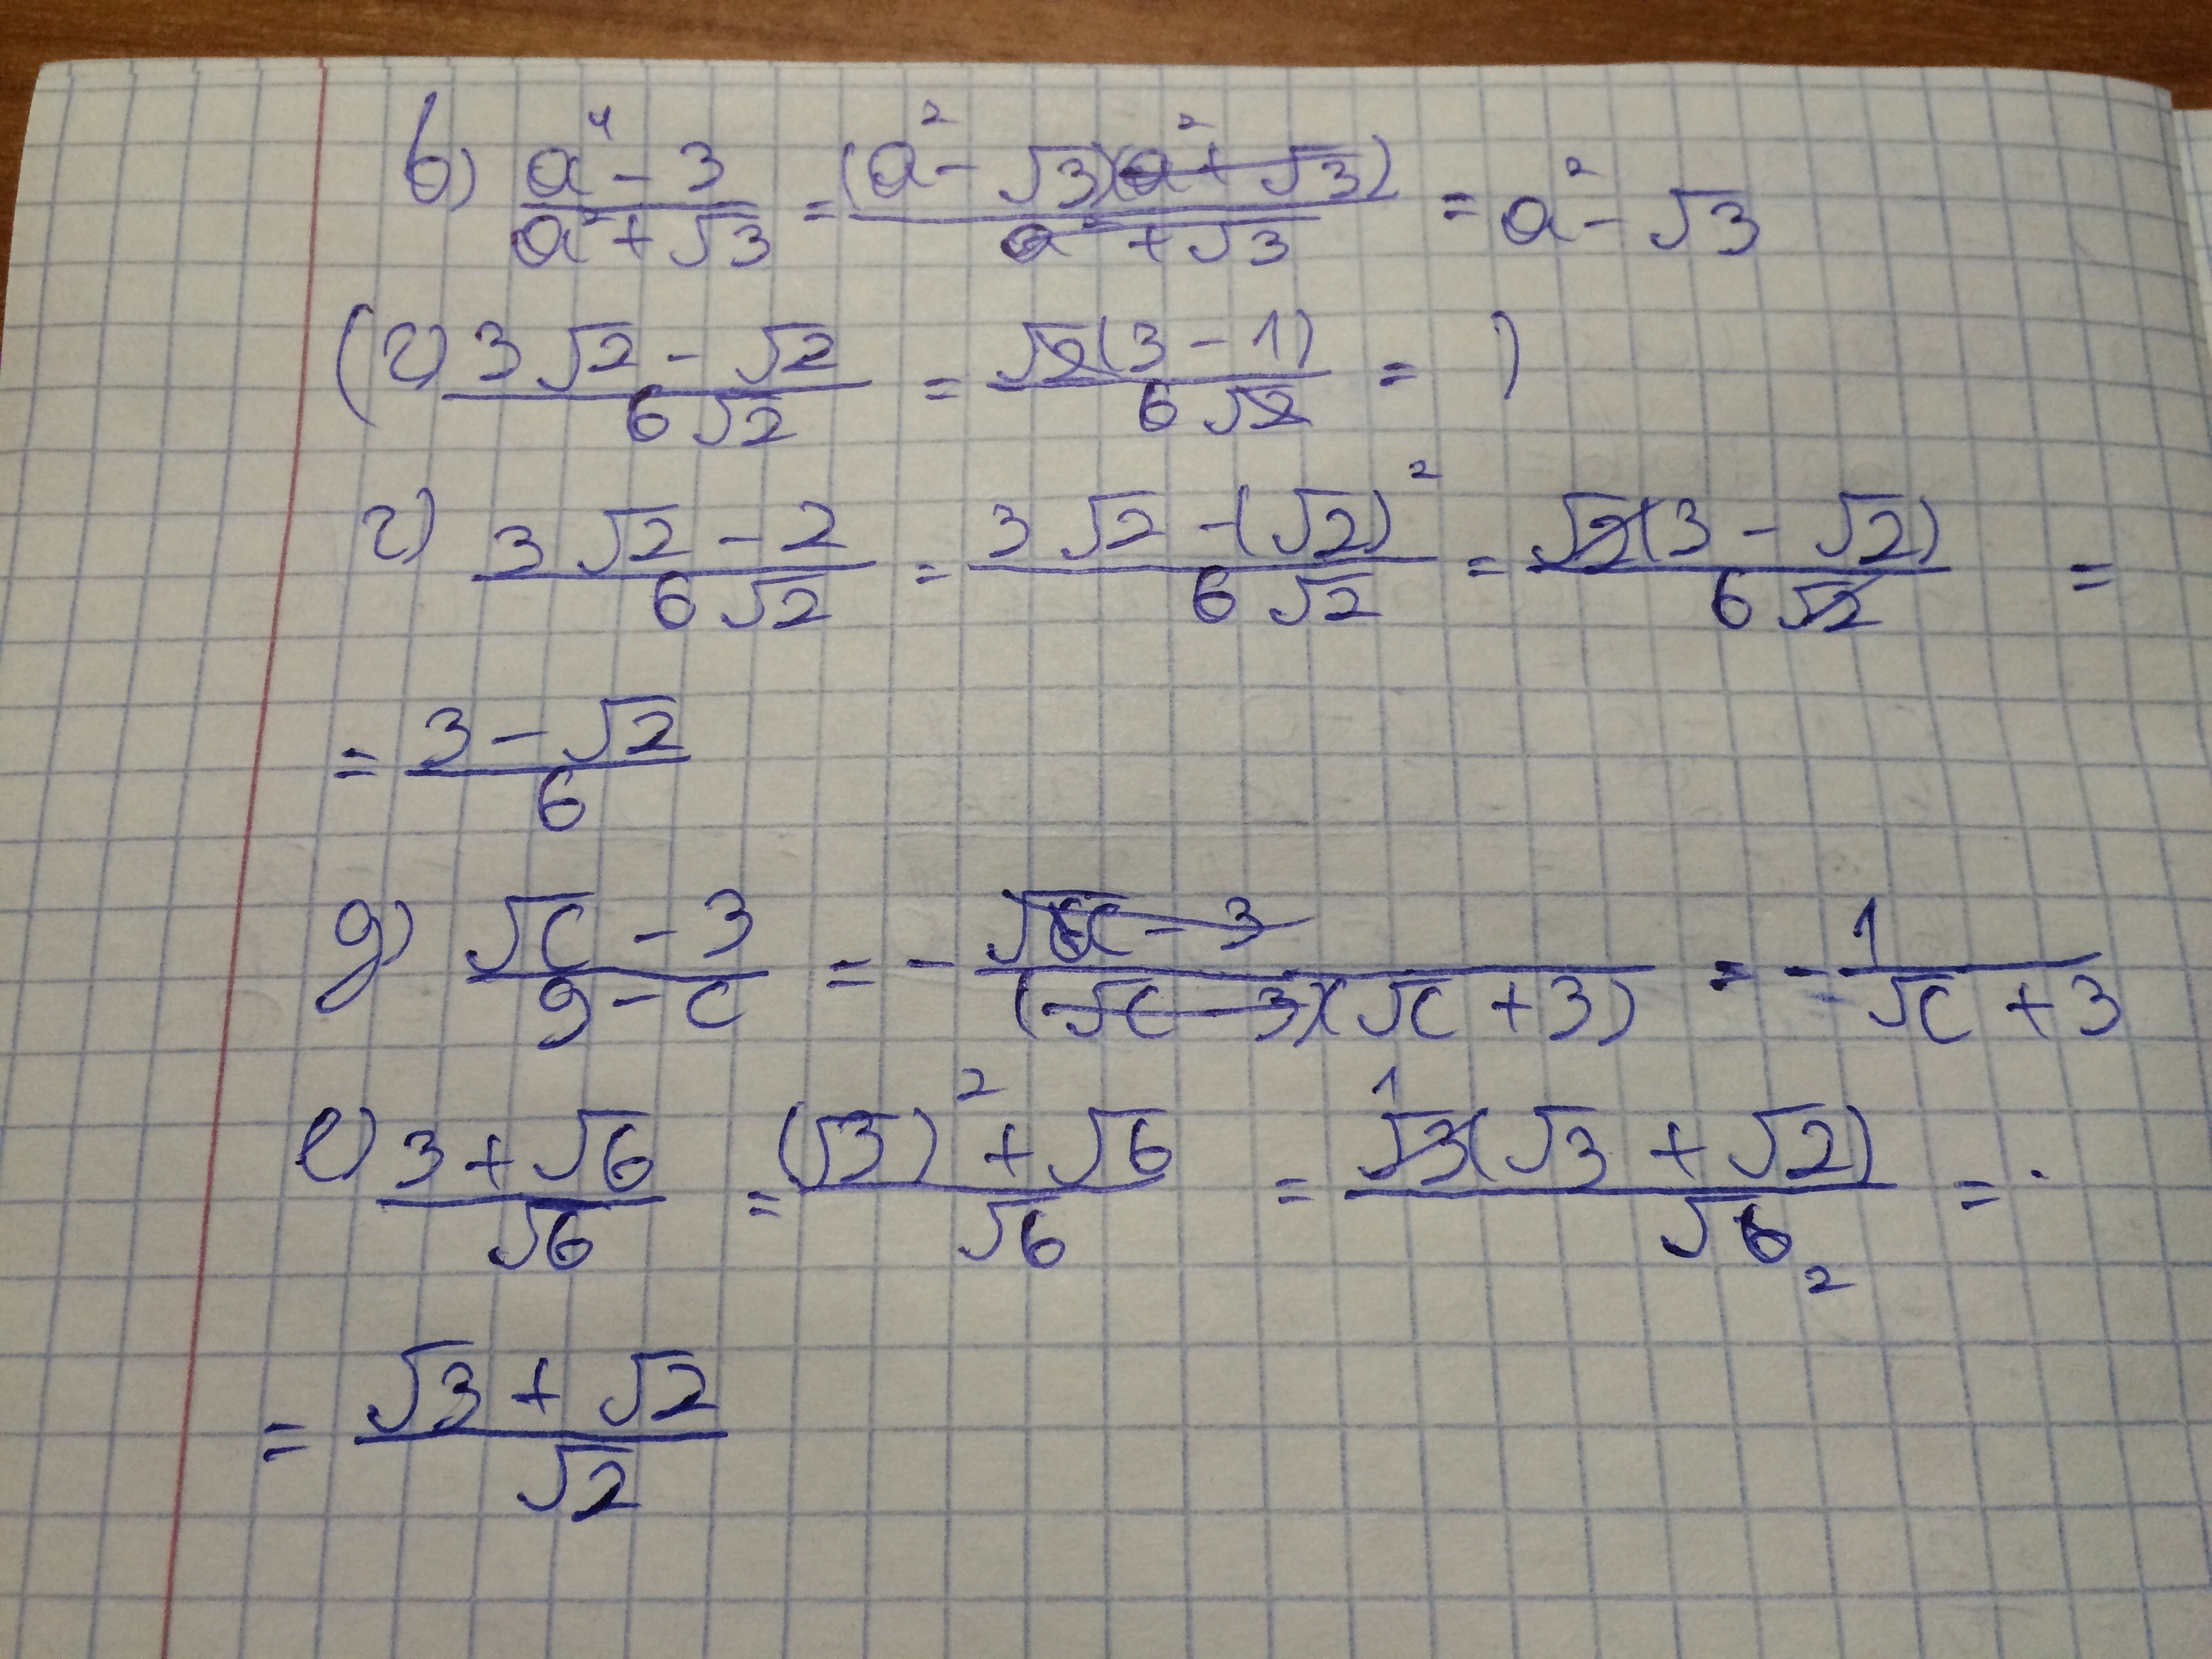 в) (a⁴ - 3)/(a² + √3) = ((a² - √3)(a² + √3))/(a² + √3) = a² - √3
(г) (3√2 - √2)/(6√2) = (√2(3 - 1))/(6√2) = )
г) (3√2 - 2)/(6√2) = (3√2 - (√2)²)/(6√2) = (√2(3 - √2))/(6√2) =
= (3 - √2)/6
д) (√c - 3)/(9 - c) = - (√c - 3)/((√c - 3)(√c + 3)) = - 1/(√c + 3)
е) (3 + √6)/√6 = ((√3)² + √6)/√6 = (¹√3(√3 + √2))/√6₂ =
= (√3 + √2)/√2